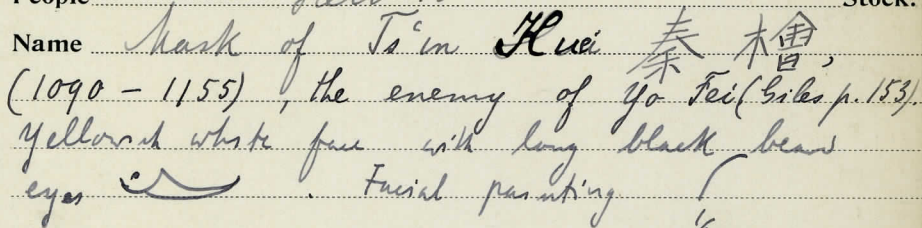 People Stock.
Name Mask of Ts'in Huei 秦檜,
(1090 - 1155), the enemy of Yo Fei (Giles p. 153)
Yellowish white face with long black beard
eyes . Facial painting